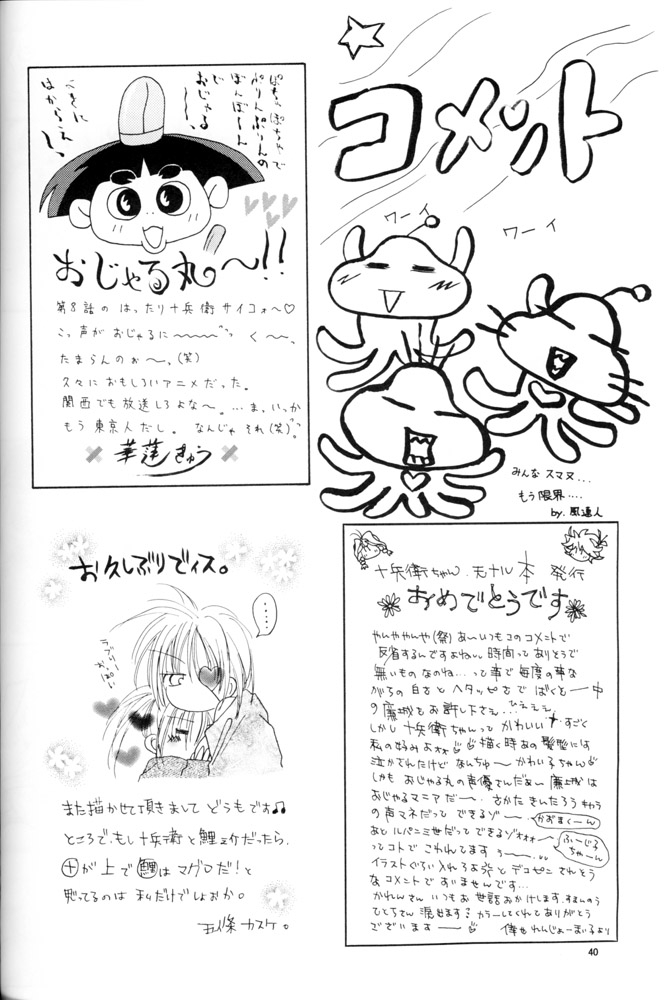 コメント
ワーイ
ワーイ
みんな スマヌ...
もう限界....
by. 風道人
ぽちゃぽちゃで
ぷりんぷりんの
ぼんぼーん
じゃ
おじゃる
へそに
はからえ〜、
おじゃる丸〜!!
第8話の はったり十兵衛 サイコォ〜♡
こっ声が おじゃるに〜〜 く〜〜、
たまらんのぉ〜、(笑)
久々に おもしろいアニメだった。
関西でも放送しろよな〜。...ま、いっか
もう 東京人だし。なんじゃ それ(笑)。
華蓮 きゅう
お久しぶりでイス。
....
ラブリー
また描かせて頂きまして どうもです♫
ところで、もし十兵衛と鯉之介だったら、
㊉が上で ㊮はマグロだ!と
思ってるのは 私だけでしょおか。
五條 カスケ。
十兵衛ちゃん. 本 発行
おめでとうです
やんややんや(祭) あ〜いつもコのコメントで
反省するんですよねぃ。時間ってありそうで
無いものなのね...って事で毎度の事な
がらの 白さと ヘタッピさで ばくと一中
の 廉城を お許し下さえ...ひえぇぇ
しかし十兵衛ちゃんって かわいい すごく
私の好みよォォ 描く時あの髪型には
泣かされたけど なんちゅ〜 かわい子ちゃん
しかも おじゃる丸の声優さんだぁぃ 廉城は
おじゃるマニアだー. さかた きんたろう
の声マネだって できるゾー
かおまくーん
あと ルパン三世だって できるゾォォォ
ふーじ子
ちゃーん
ってコトで こわれてます う〜〜...
イラストぐらい入れろよ と デコピン されそう
な コメントで すいませんです...
かれんさん いつも お世話 おかけします.
ひとちさん 泊めます? カラーしてくれて ありがとう
ございます ー
れんじょーまい子より
40